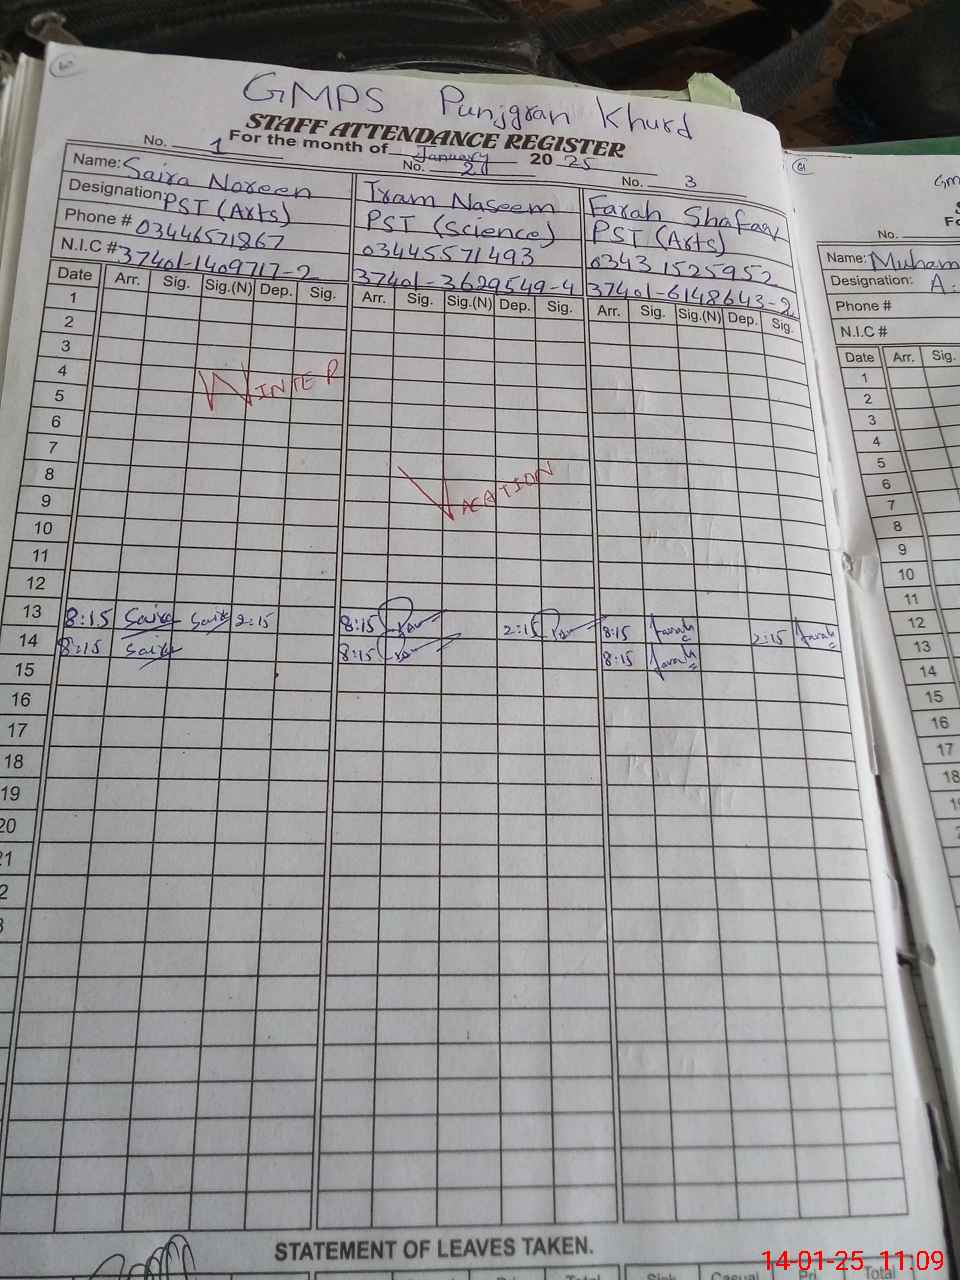 GMPS Punjgran Khurd
STAFF ATTENDANCE REGISTER
For the month of January 2025
No. 1 No. 2 No. 3
Name: Saira Noreen Iram Naseem Farah Shafaat
Designation PST (Arts) PST (Science) PST (Arts)
Phone # 03446571867 03445571493 03431525952
N.I.C # 37401-1409717-2 37401-3629549-4 37401-6148643-2
Date Arr. Sig. Sig.(N) Dep. Sig. Arr. Sig. Sig.(N) Dep. Sig. Arr. Sig. Sig.(N) Dep. Sig.
1
2
3
4 WINTER
5
6
7
8 VACATION
9
10
11
12
13 8:15 Saira Saira 2:15 8:15 2:15 8:15 Farah 2:15 Farah
14 8:15 Saira 8:15 8:15 Farah
15
16
17
18
19
20
21
2
3
STATEMENT OF LEAVES TAKEN.
Total Sick Casual Pri Total
61
GM
S
Fo
No.
Name: Muham
Designation: A.
Phone #
N.I.C #
Date Arr. Sig.
1
2
3
4
5
6
7
8
9
10
11
12
13
14
15
16
17
18
14-01-25 11:09